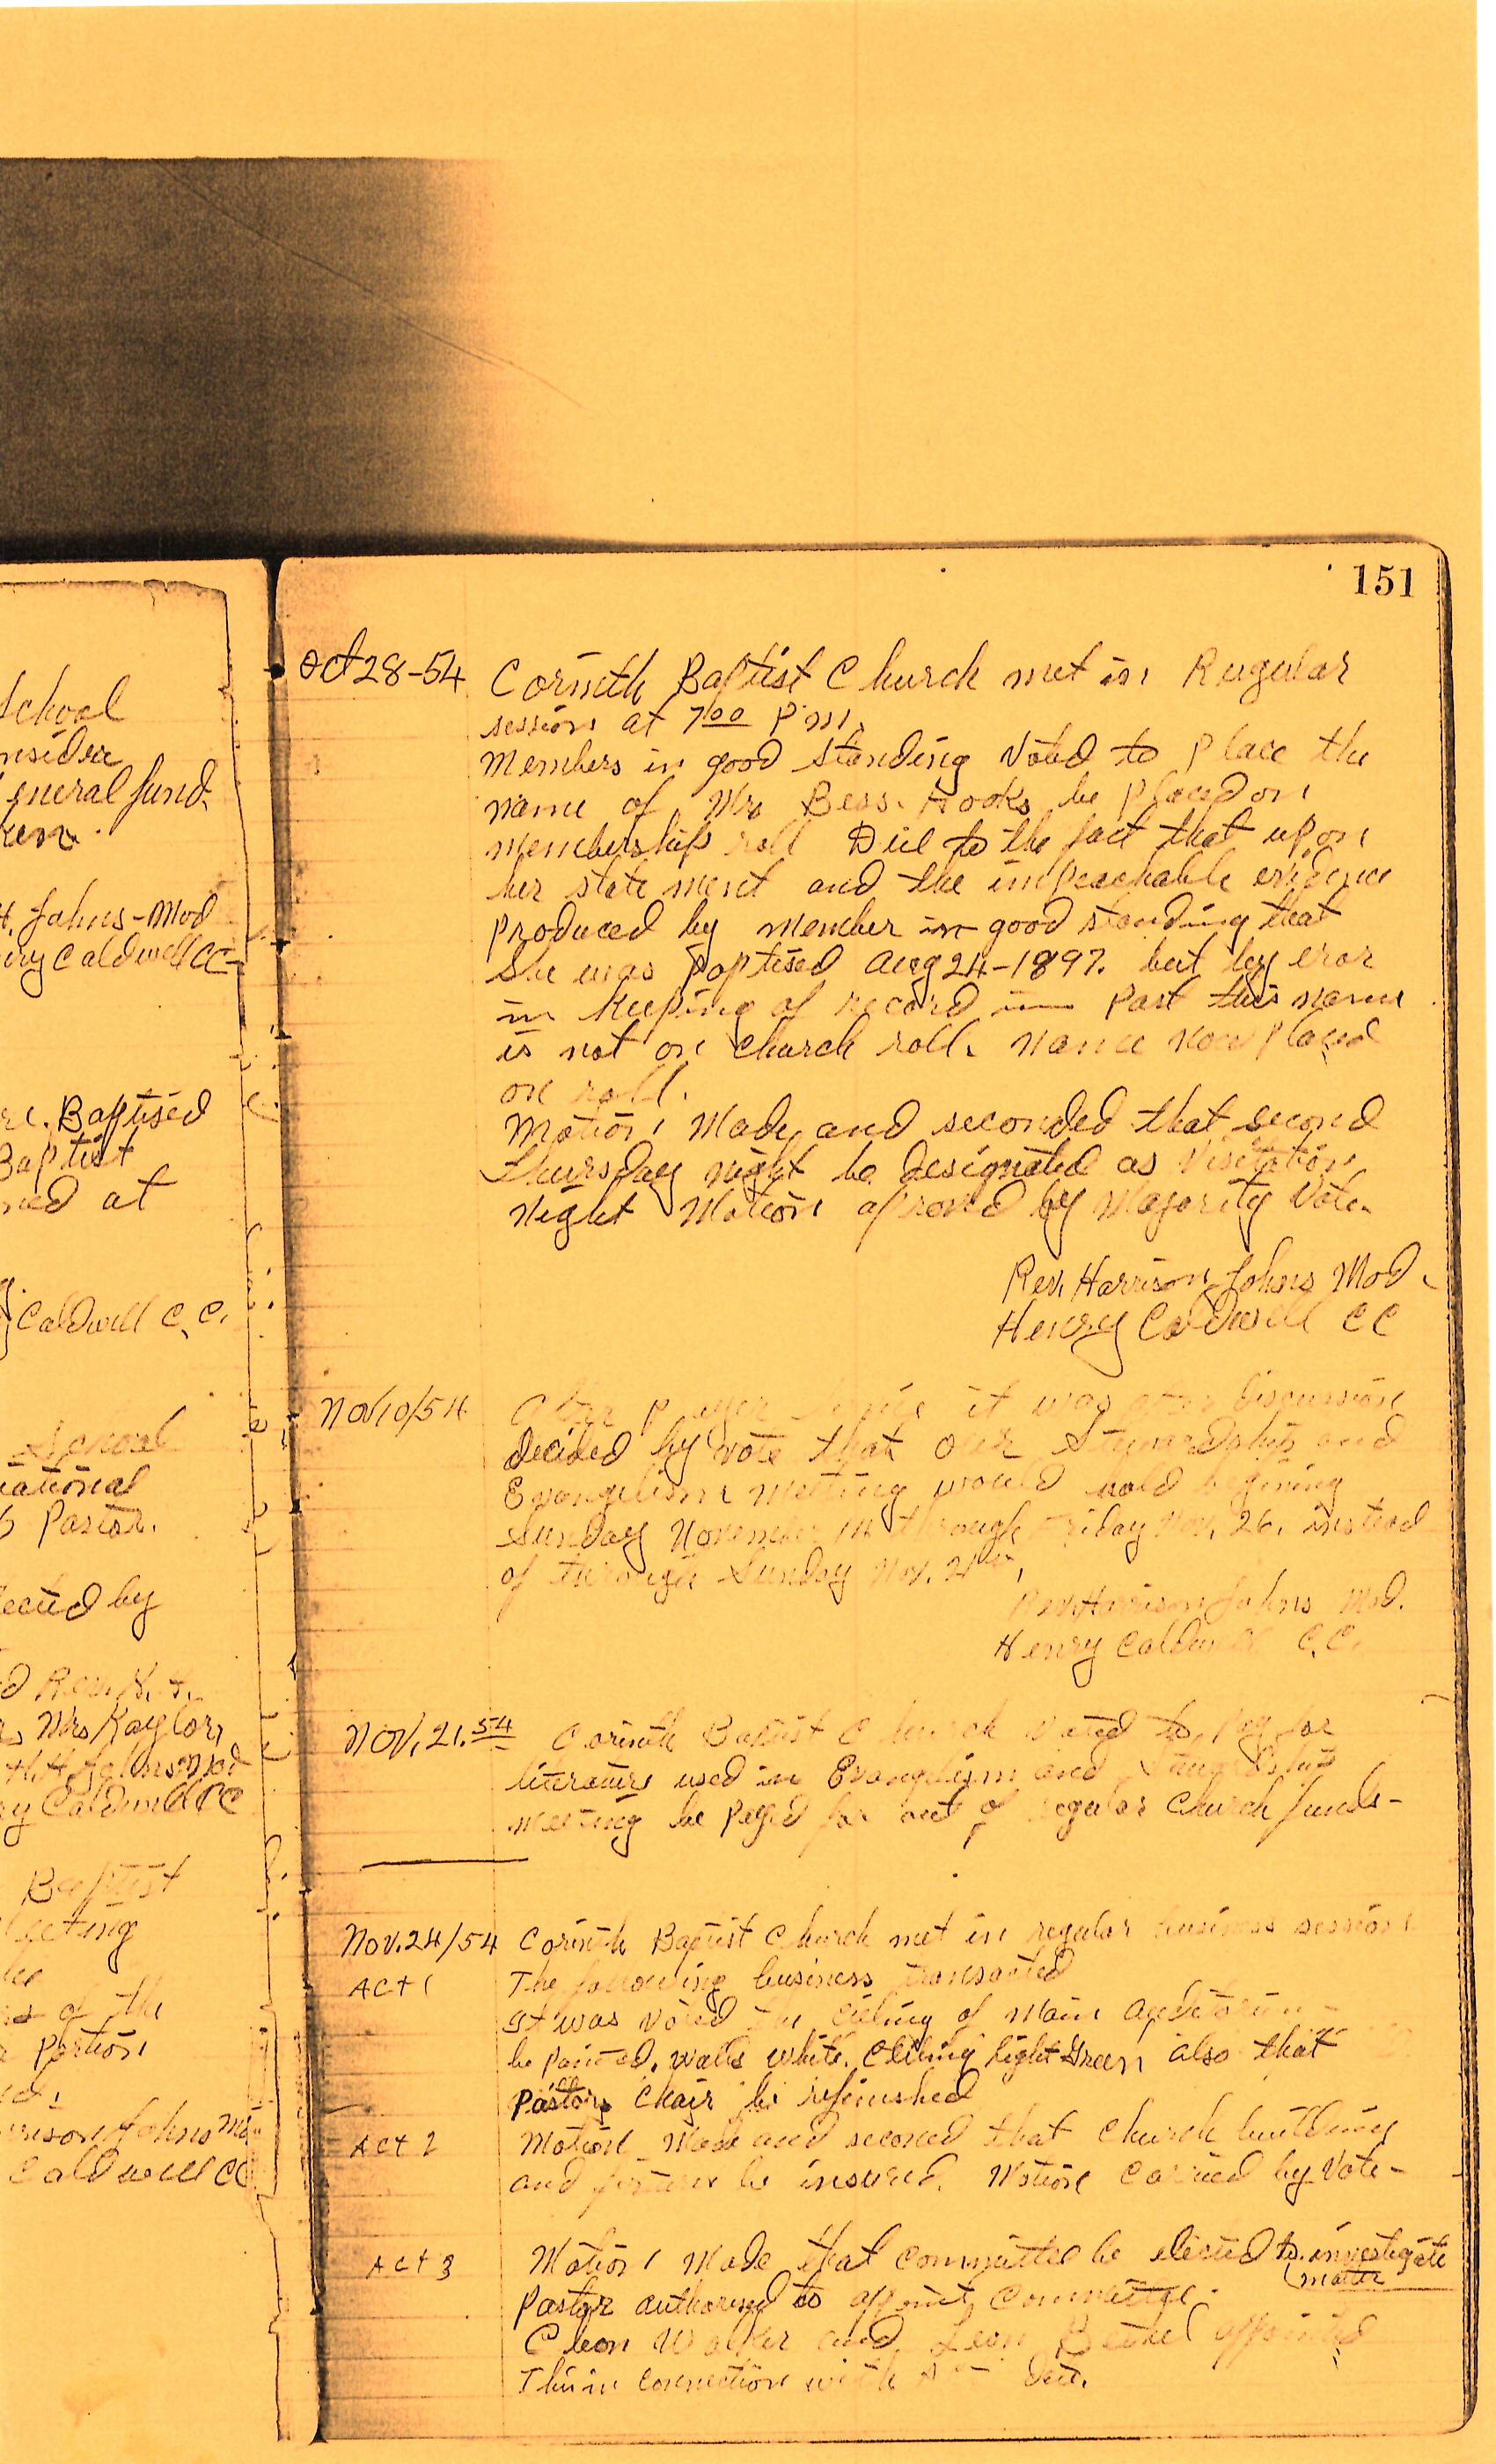 151
School
nsider
eneral fund.
H. Johns-Mod
Caldwell CC
Baptised
Baptist
ned at
Caldwell C.C.
School
national
Pastor.
by
Rev. H. H.
Mrs Kaylor,
H.H Johns Mod
Caldwell CC
Baptist
of the
Portion
Johns
Caldwell CC
Oct 28-54 Corinth Baptist Church met in Regular
session at 7:00 P.M.
Members in good standing Voted to Place the
name of Mrs Bess. Hooks be placed on
membership roll Due to the fact that upon
her statement and the impeachable evidence
produced by member in good standing that
She was Baptised Aug 24-1897. but by eror
in keeping of record in Past this name
is not on church roll. Name now placed
on roll.
Motion Made and seconded that second
Thursday night be designated as Visitation
Night Motion aproved by Majority Vote.
Rev. Harrison Johns Mod.
Henry Caldwell CC
Nov 10/54 After it was after discussion
decided by vote that our Stewardship and
Evangelism meeting would hold begining
Sunday November through Friday Nov. 26. instead
of through Sunday Nov.
Rev. Harrison Johns Mod.
Henry Caldwell C.C.
Nov. 21. 54 Corinth Baptist Church voted to pay for
literature used in Evangelism and Stewardship
meeting be payed for out of regular church funds-
Nov. 24/54 Corinth Baptist Church met in regular business session
Act 1 The following business transacted
It was voted the ceiling of Main
be painted. walls white. Ceiling light Green also that
Pastors Chair be refinished
Act 2 Motion Made and seconed that church building
and be insured. Motion Carried by Vote-
Act 3 Motion Made that committee be elected to investigate
matter
Pastor authorized to appoint Committee.
Cleon Walker and Leon appointed
in connection with